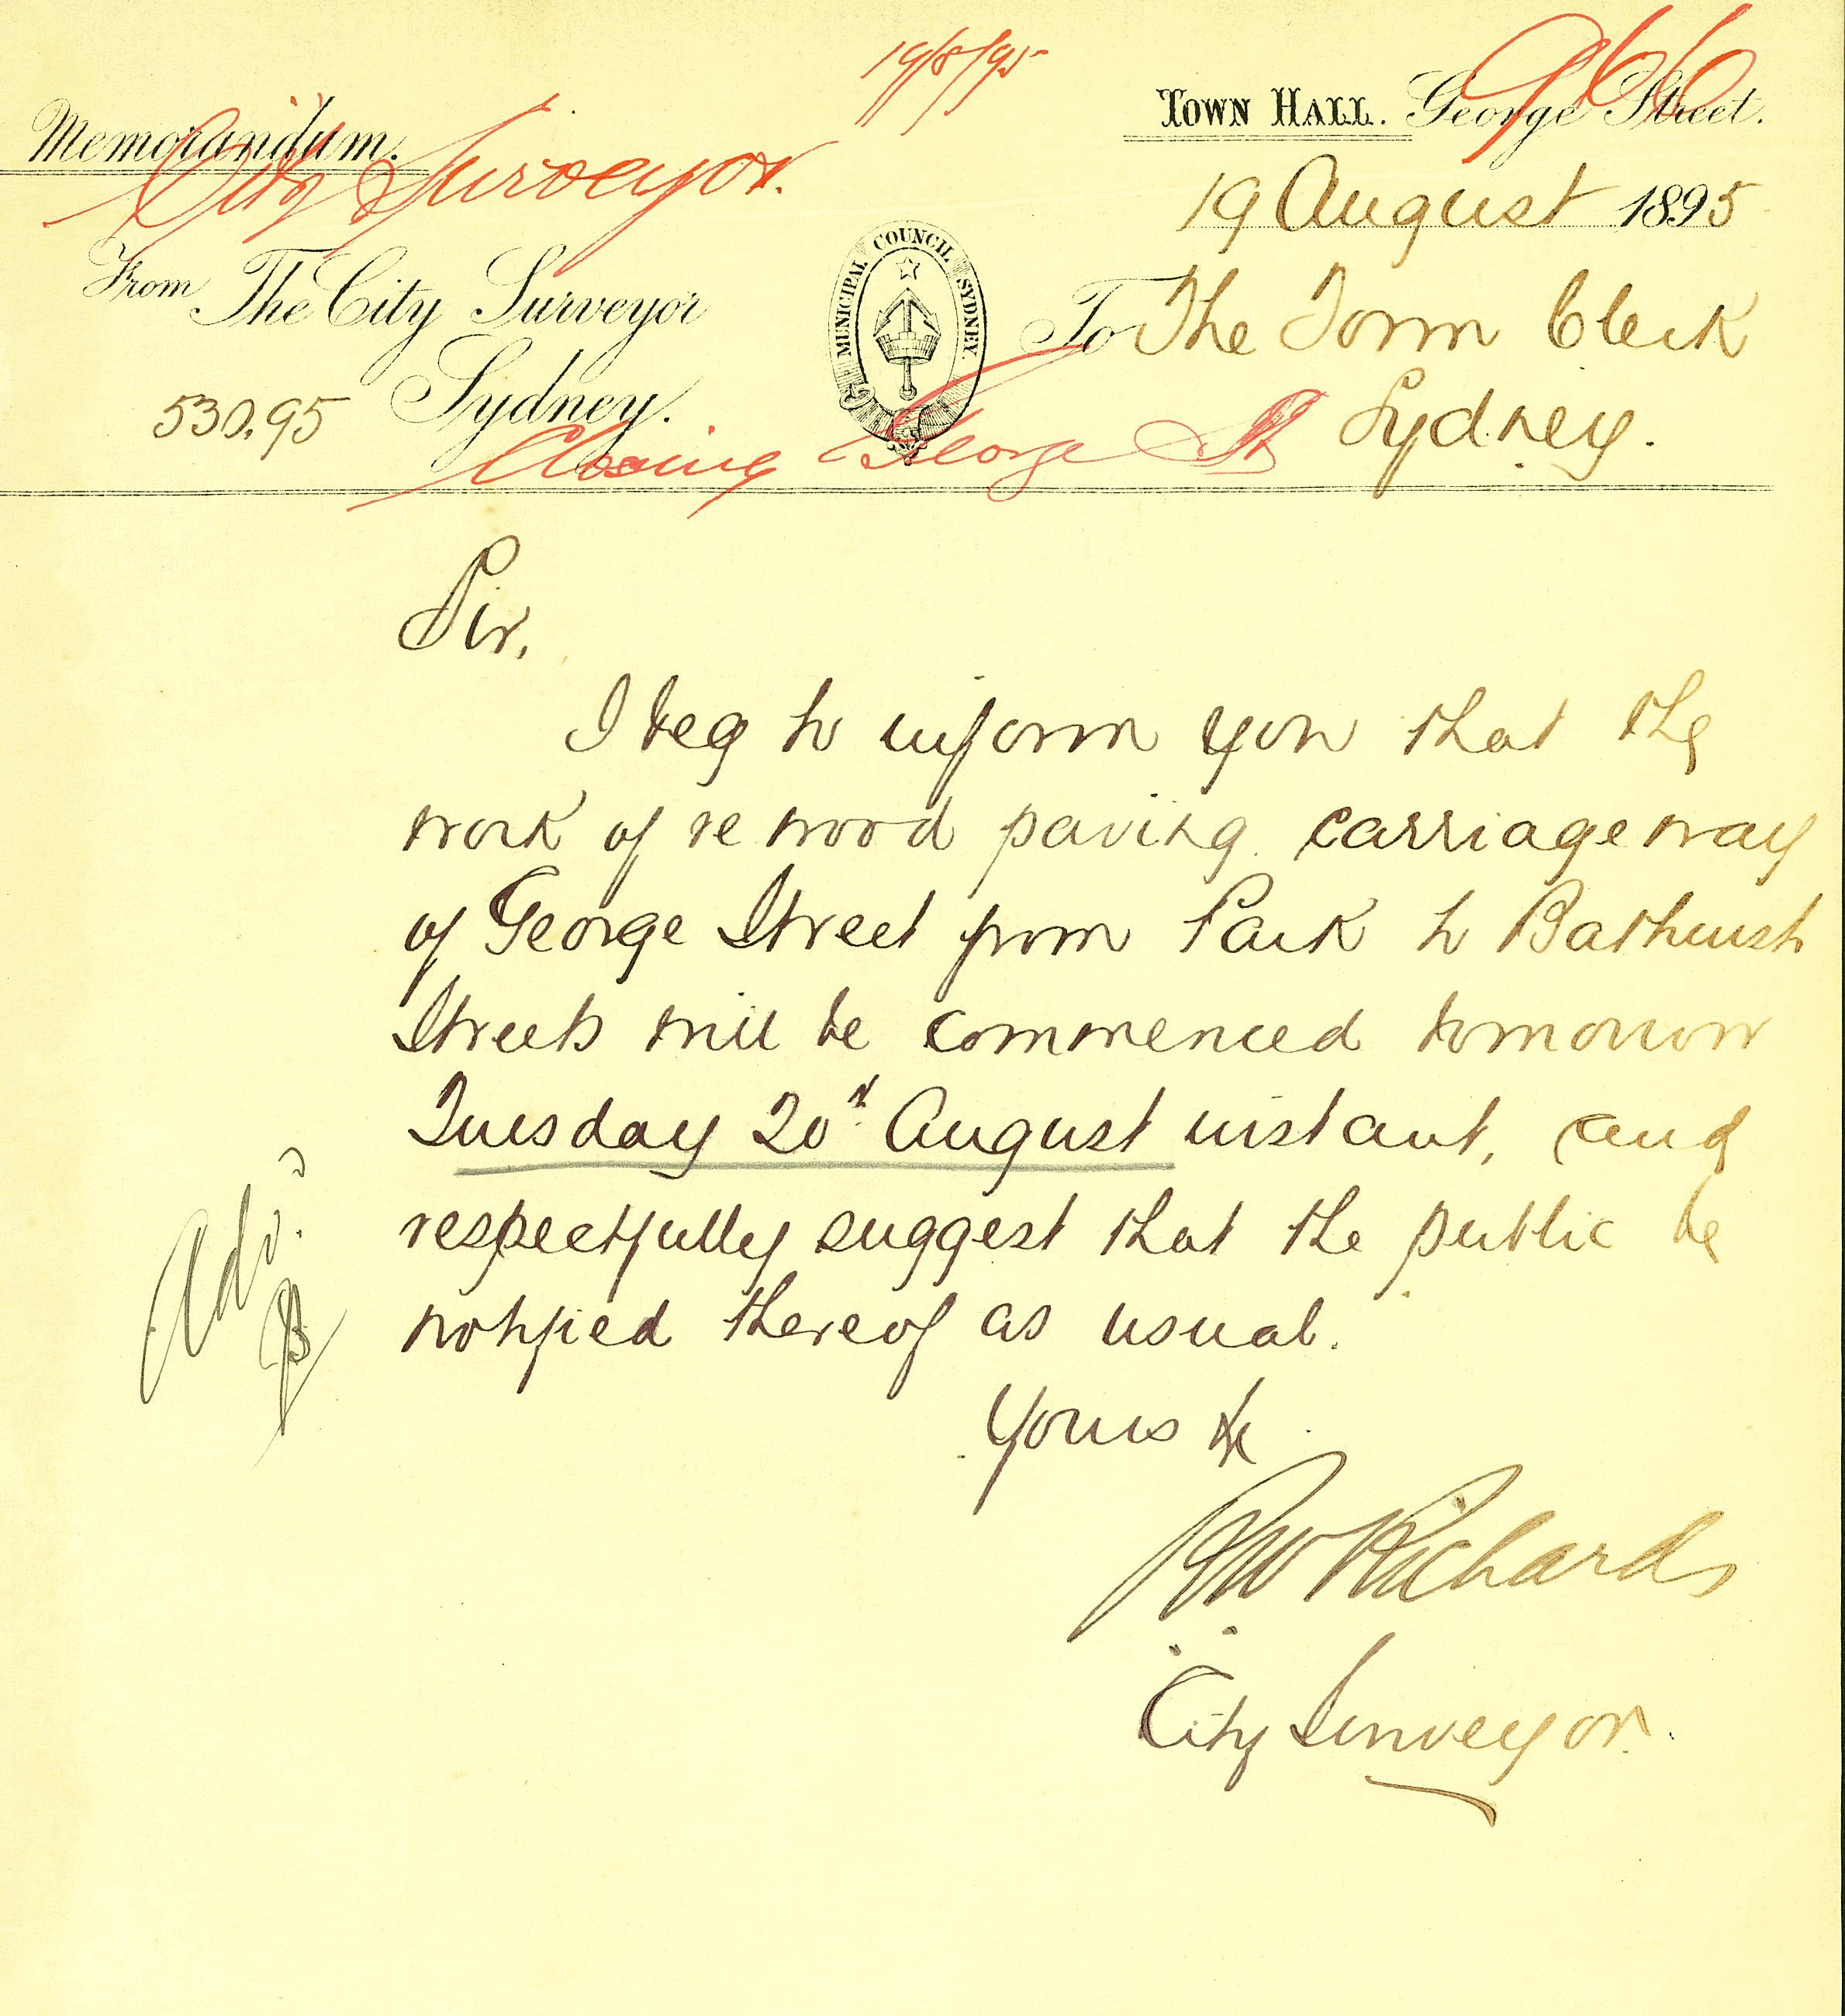 19/8/95
966
TOWN HALL. George Street.
Memorandum.
City Surveyor.
19 August 1895
From The City Surveyor
Sydney.
MUNICIPAL COUNCIL SYDNEY
To The Town Clerk
Sydney.
530.95
Closing George St
Sir,
I beg to inform you that the
work of re wood paving carriageway
of George Street from Park to Bathurst
Streets will be commenced tomorrow
Tuesday 20th August instant, and
respectfully suggest that the public be
notified thereof as usual.
Adv.
Yours &c
RW Richards
City Surveyor.